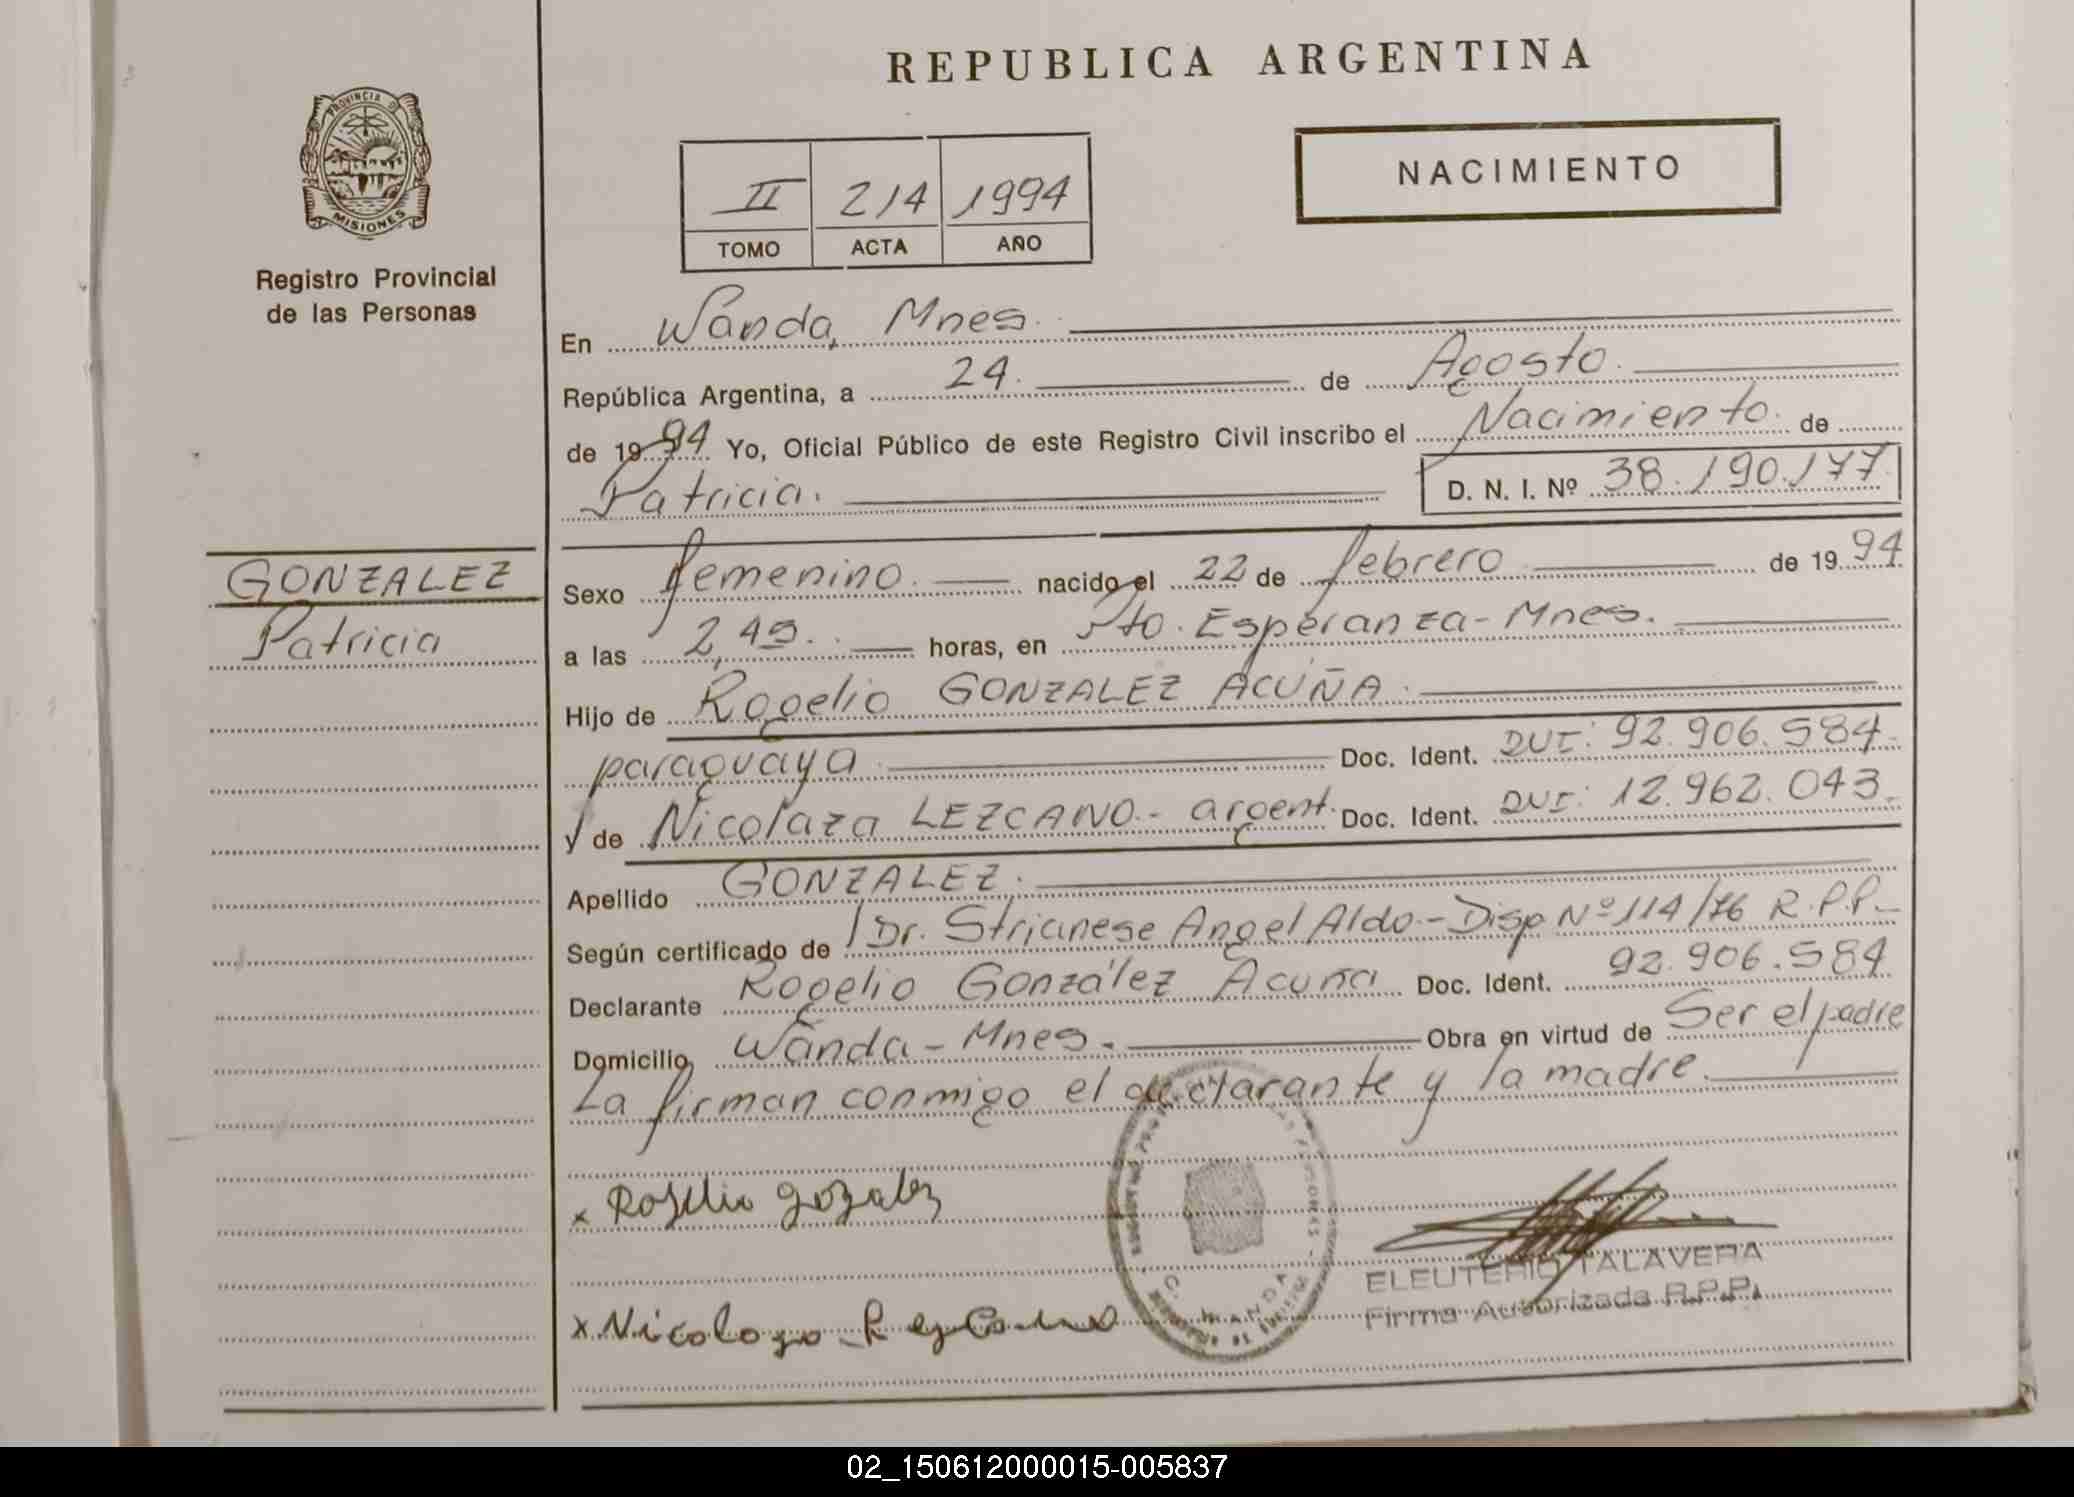 REPUBLICA ARGENTINA
PROVINCIA DE
MISIONES
Registro Provincial
de las Personas
II 214 1994
TOMO ACTA AÑO
NACIMIENTO
En Wanda, Mnes.
República Argentina, a 24. de Agosto.
de 1994 Yo, Oficial Público de este Registro Civil inscribo el Nacimiento. de
Patricia. D. N. I. Nº 38.190.177
GONZALEZ
Patricia
Sexo femenino. nacido el 22 de febrero de 1994
a las 2,45. horas, en Pto. Esperanza - Mnes.
Hijo de Rogelio GONZALEZ ACUÑA.
paraguaya Doc. Ident. DUI: 92.906.584.
y de Nicolaza LEZCANO.- argent. Doc. Ident. DUI: 12.962.043.
Apellido GONZALEZ.
Según certificado de Dr. Strianese Angel Aldo.- Disp Nº 114/76 R.P.P.-
Declarante Rogelio González Acuña Doc. Ident. 92.906.584
Domicilio Wanda - Mnes. Obra en virtud de Ser el padre
La firman conmigo el declarante y la madre.
x Rogelio gozalez
ELEUTERIO TALAVERA
Firma Autorizada R.P.P.
x Nicolaza
WANDA
02_150612000015-005837